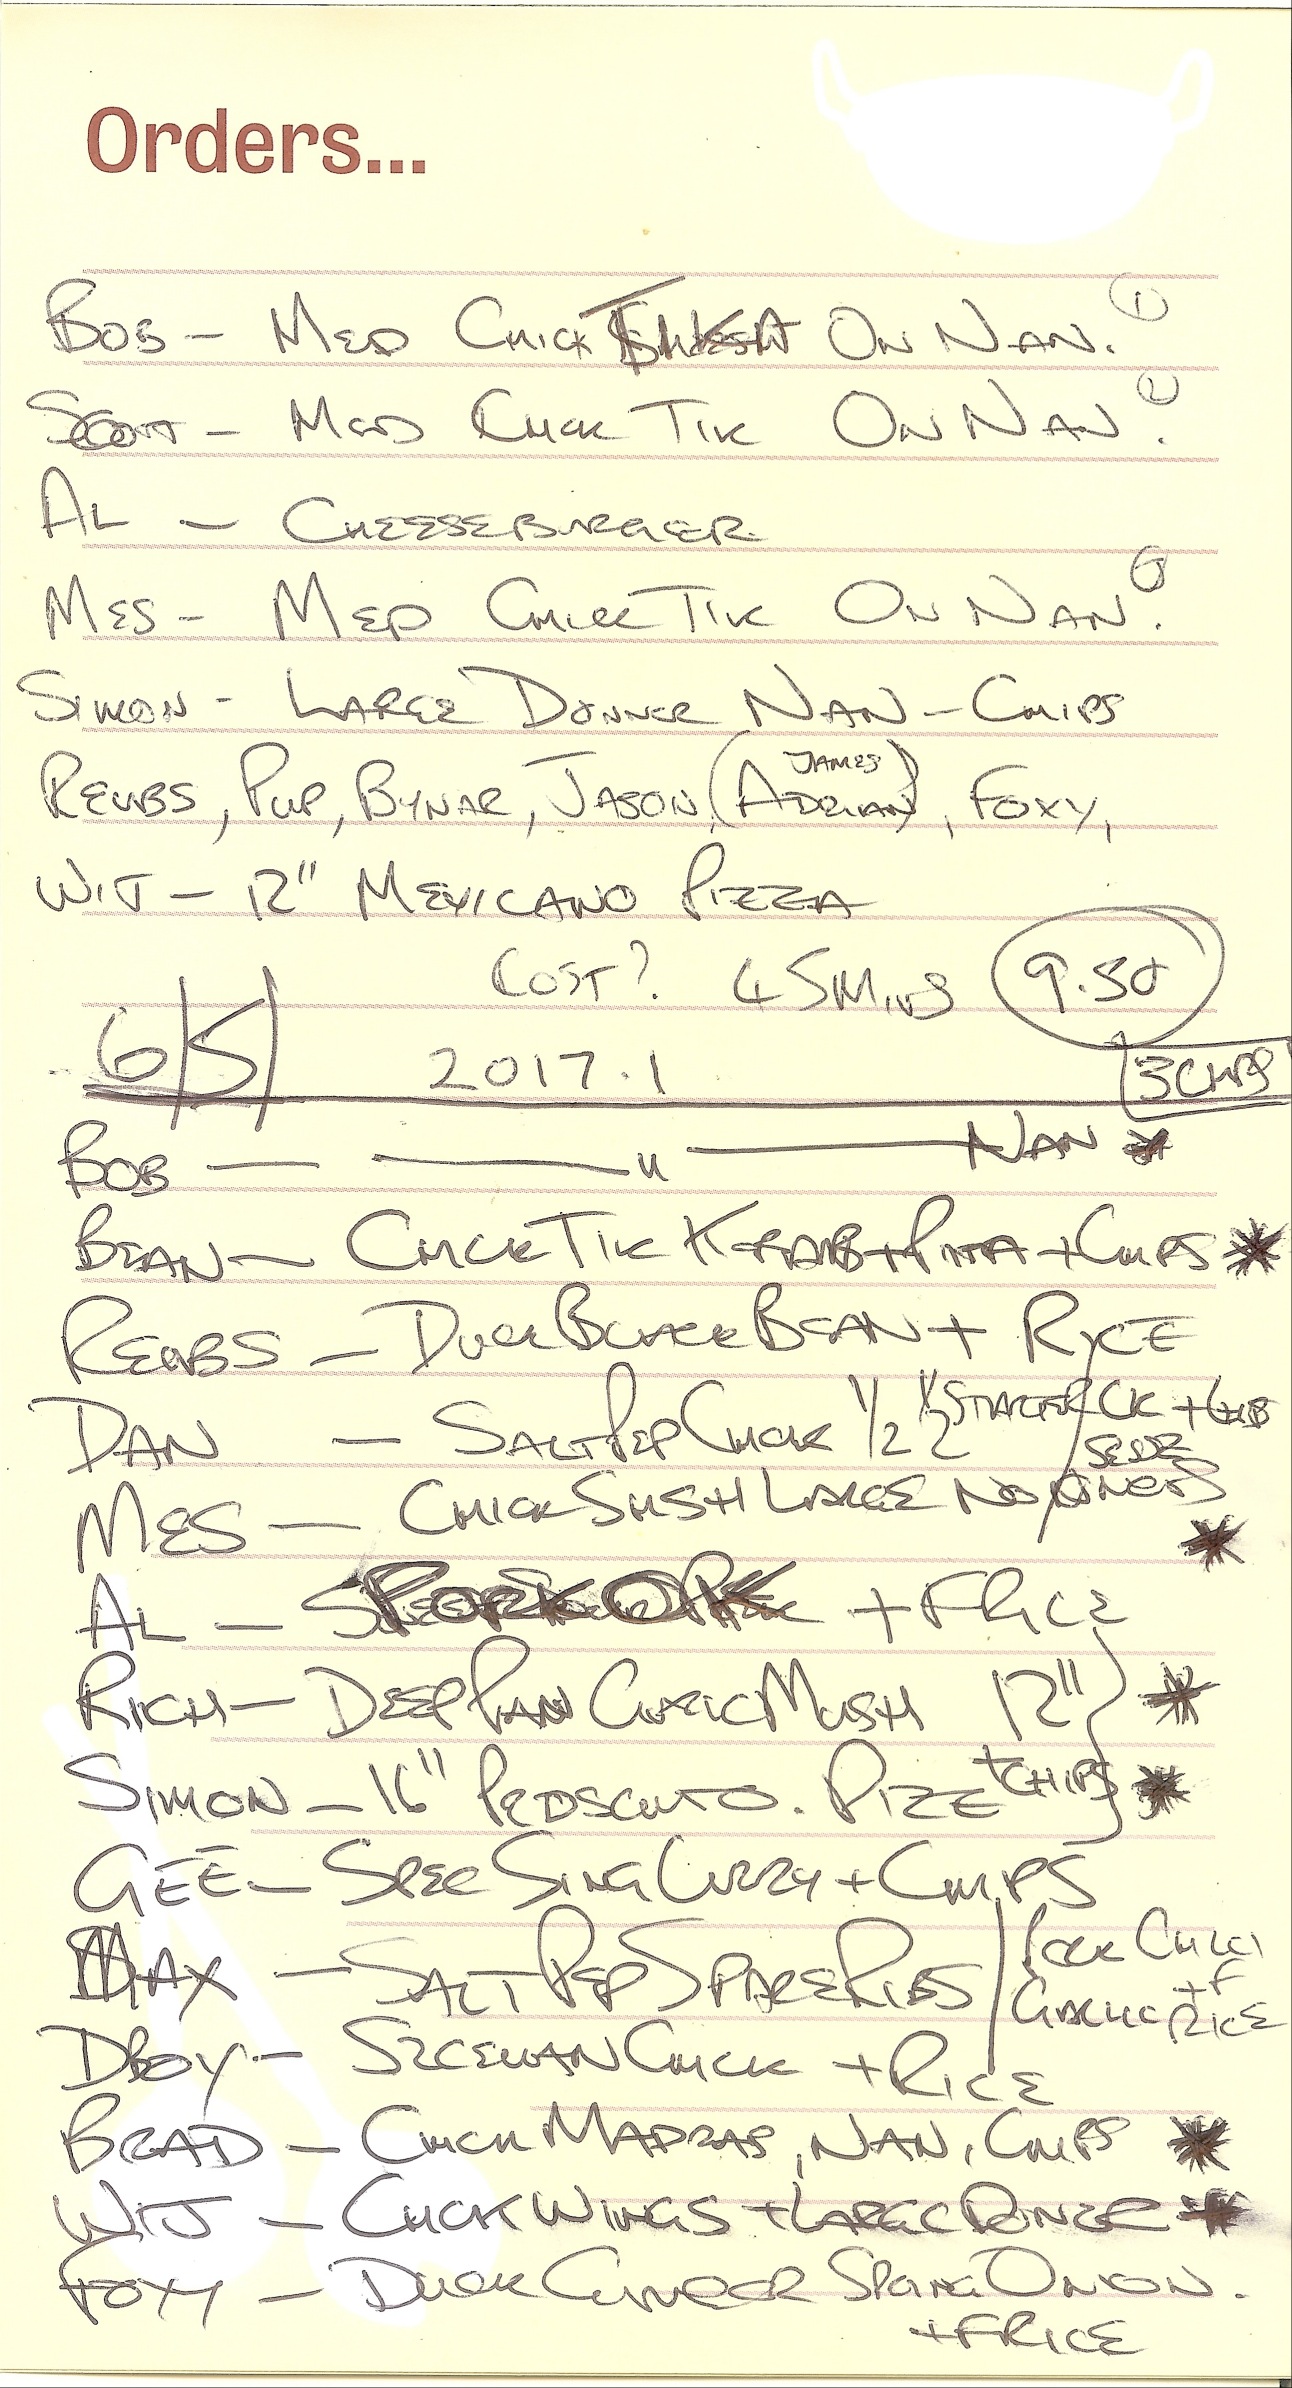 Orders...
BOB - MED CHICK TIKKA ON NAN. 1
SCOTT - MED CHICK TIK ON NAN. 2
AL - CHEESEBURGER
MES - MED CHICK TIK ON NAN. 3
SIMON - LARGE DONNER NAN - CHIPS
REUBS, PUP, BYNAR, JASON, (ADRIAN) JAMES, FOXY,
WIJ - 12" MEXICANO PIZZA
COST? 45 MINS 9.50
6/5/ 2017.1 3 CHIPS
BOB — — " — NAN *
BEAN - CHICK TIK KEBAB + PITTA + CHIPS *
REUBS - DUCK BLACK BEAN + RICE
DAN - SALT PEP CHICK 1/2 1/2 STARTER / CK +
MES - CHICK SHISH LARGE NO ONIONS *
AL - PORK + F RICE
RICH - DEEP PAN GARLIC MUSH 12" *
SIMON - 16" PROSCUTO. PIZZE + CHIPS *
GEE - SPEC SING CURRY + CHIPS
MAX - SALT PEP SPARE RIBS / PORK CHILLI
GARLIC + F RICE
DBOY - SZCEHAN CHICK + RICE
BRAD - CHICK MADRAS, NAN, CHIPS *
WIJ - CHICK WINGS + LARGE DONER *
FOXY - DUCK GINGER SPRING ONION.
+ F RICE